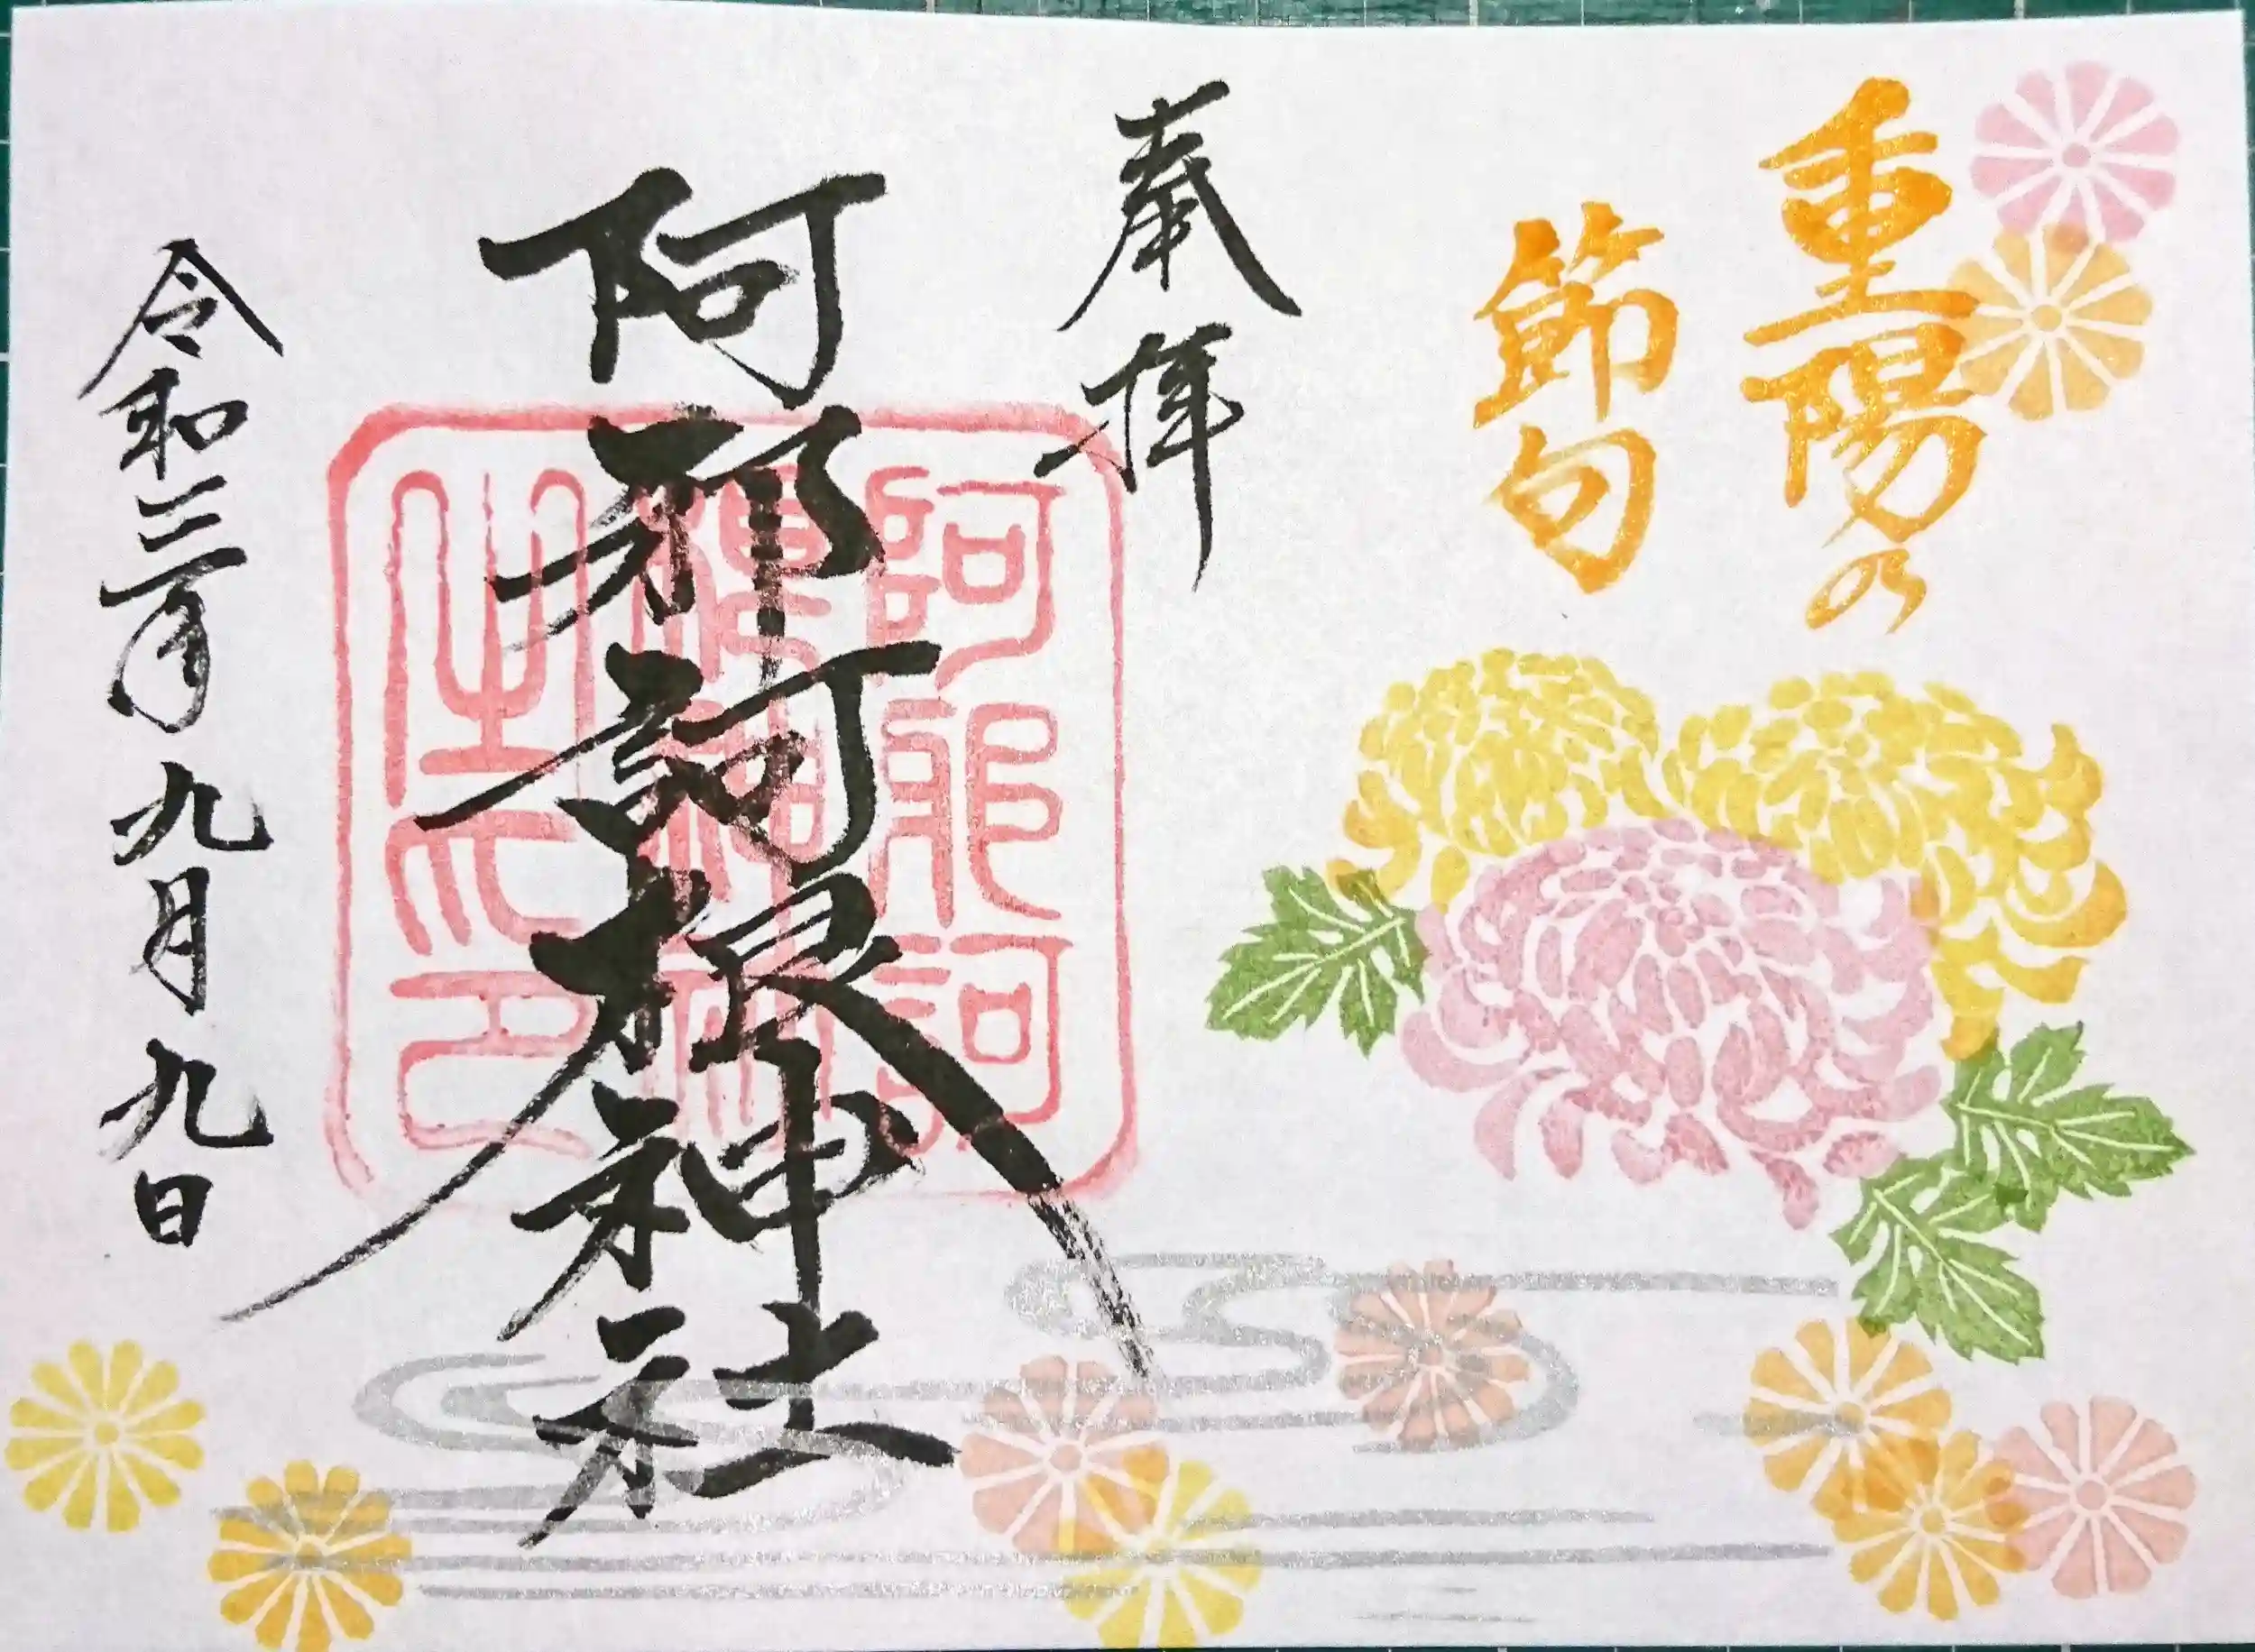 重陽の
節句
奉拝
阿邪訶根神社
阿耶訶
根神社
之印
令和三年九月九日